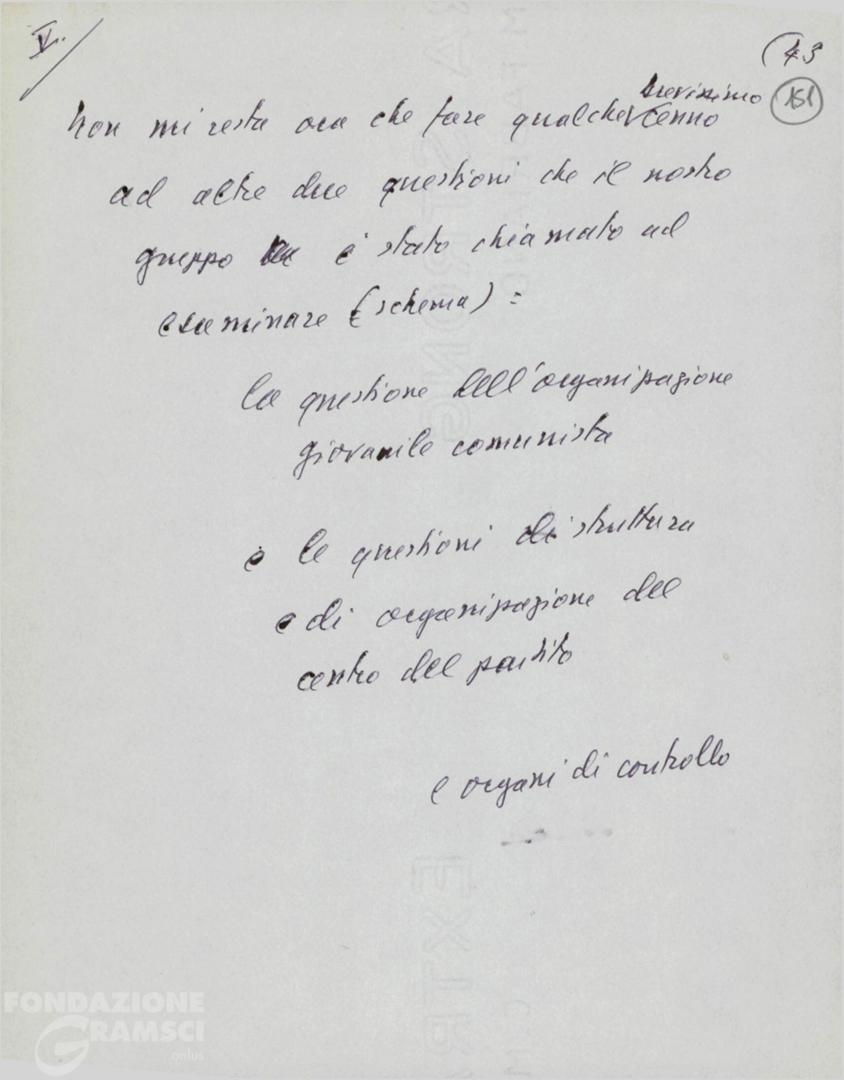 V.
43
151
brevissimo
Non mi resta ora che fare qualche cenno
ad altre due questioni che il nostro
gruppo è stato chiamato ad
esaminare (schema) :
la questione dell'organizzazione
giovanile comunista
e le questioni di struttura
e di organizzazione del
centro del partito
e organi di controllo
FONDAZIONE
GRAMSCI
onlus